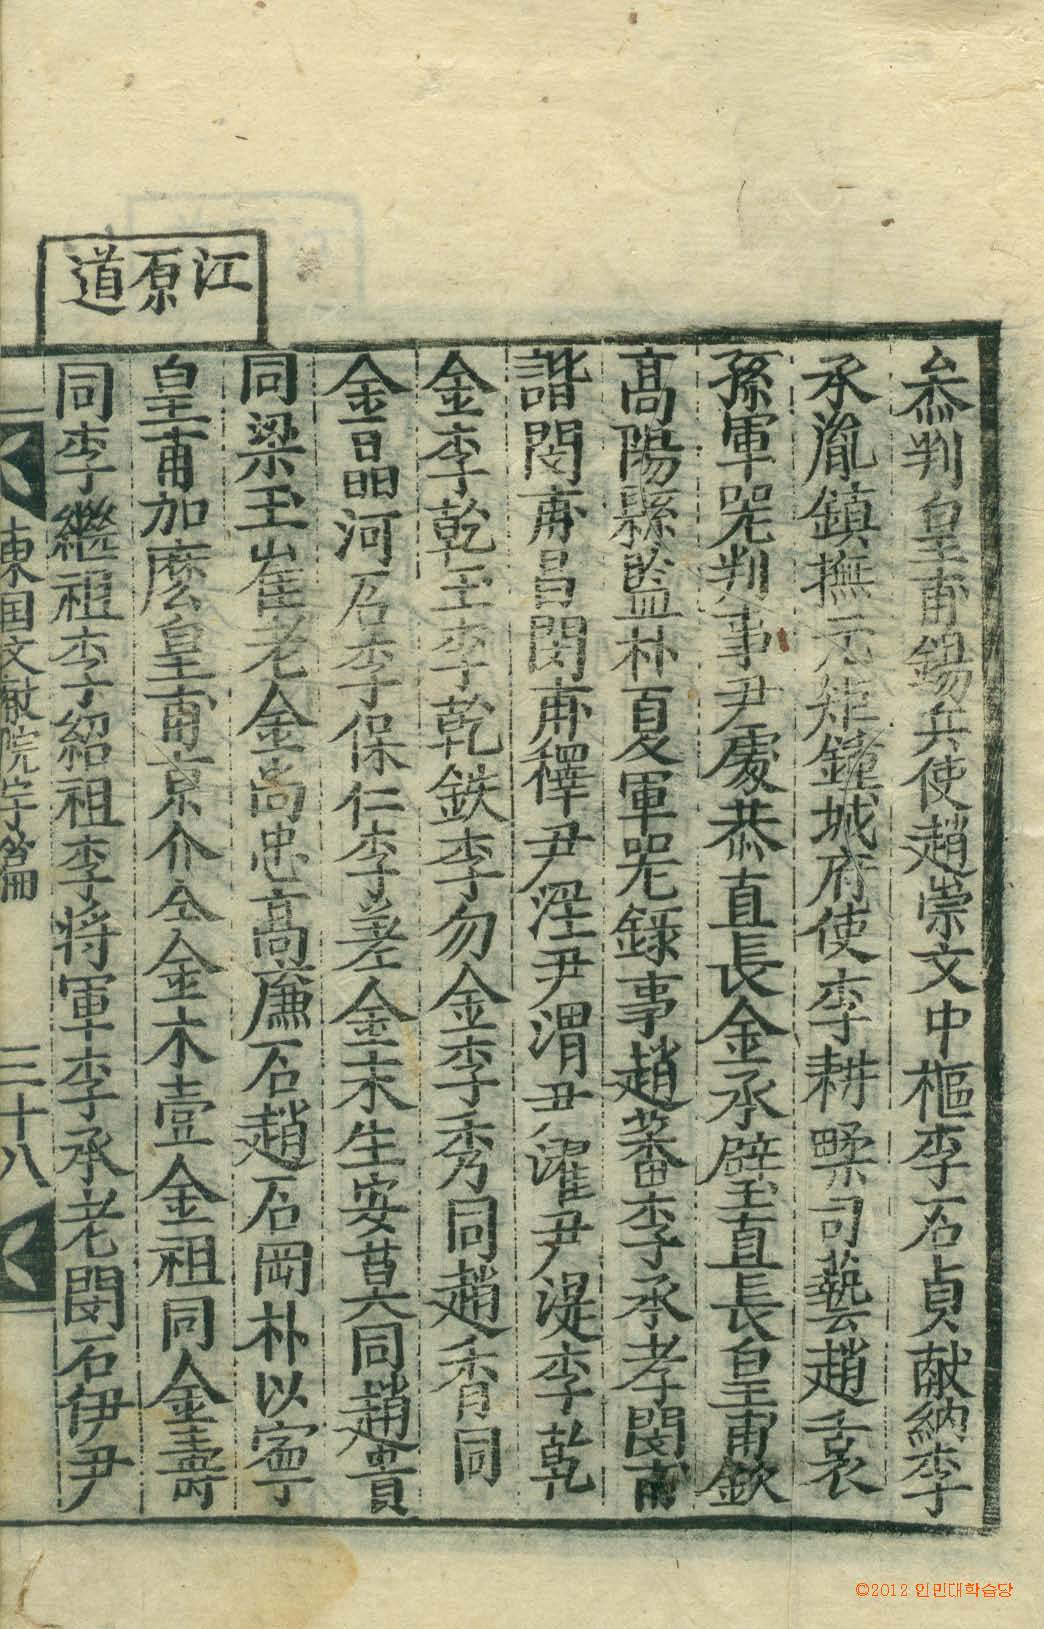 江原道
叅判皇甫錫兵使趙崇文中樞李石貞献納李
承胤鎮撫元矩鐘城府使李耕㽥司藝趙衮
孫軍器判事尹處恭直長金承璧直長皇甫欽
髙陽縣監朴夏軍器錄事趙蕃李承孝閔甫
諧閔甫昌閔甫釋尹涇尹渭尹濯尹湜李乾
金李乾玉李乾鉄李勿金李秀同趙香同
金晶河石李保仁李差金末生安莫六同趙貴
同梁玉崔老金尚忠髙廉石趙石岡朴以寧
皇甫加麽皇甫京介仝金木壹金祖同金壽
同李繼祖李紹祖李将軍李承老閔石伊尹
東国文献院宇篇 三十八
©2012 인민대학습당